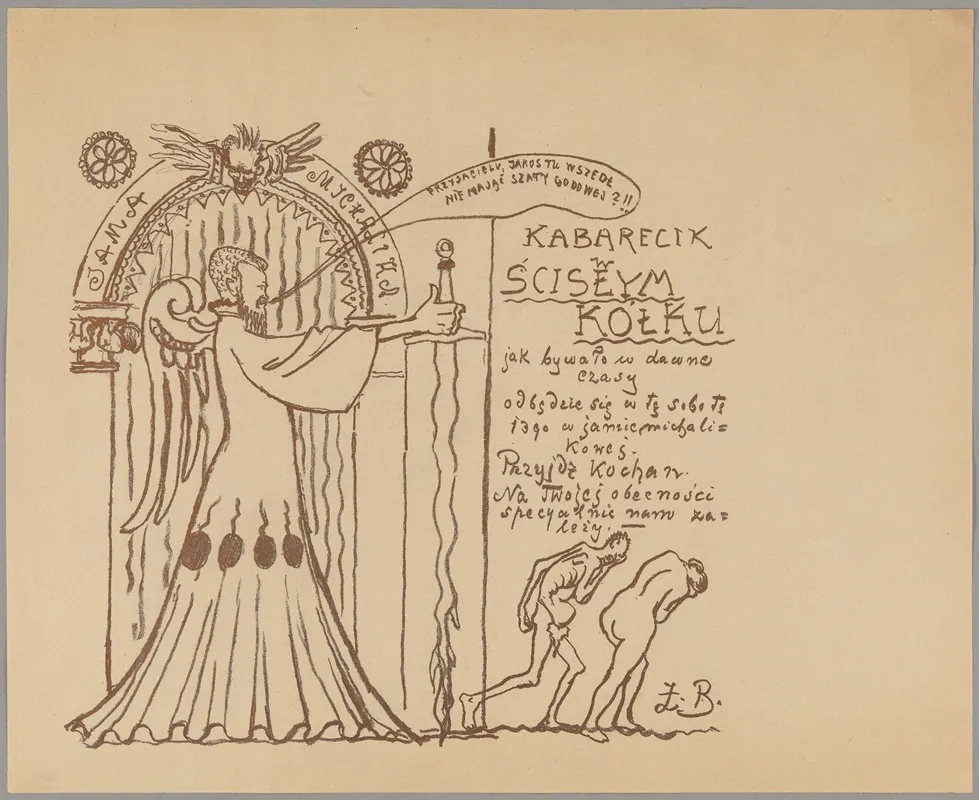 JAMA MICHALIKA
PRZYJACIELU, JAKOŚ TU WSZEDŁ
NIE MAJĄC SZATY GODOWEJ ?!!
KABARECIK
W
ŚCISŁYM
KÓŁKU
jak bywało w dawne
czasy
odbędzie się w tę sobotę
13go w jamie michali=
kowej.
Przyjdź Kochan.
Na Twojej obecności
specyalnie nam za=
leży. —
L. B.